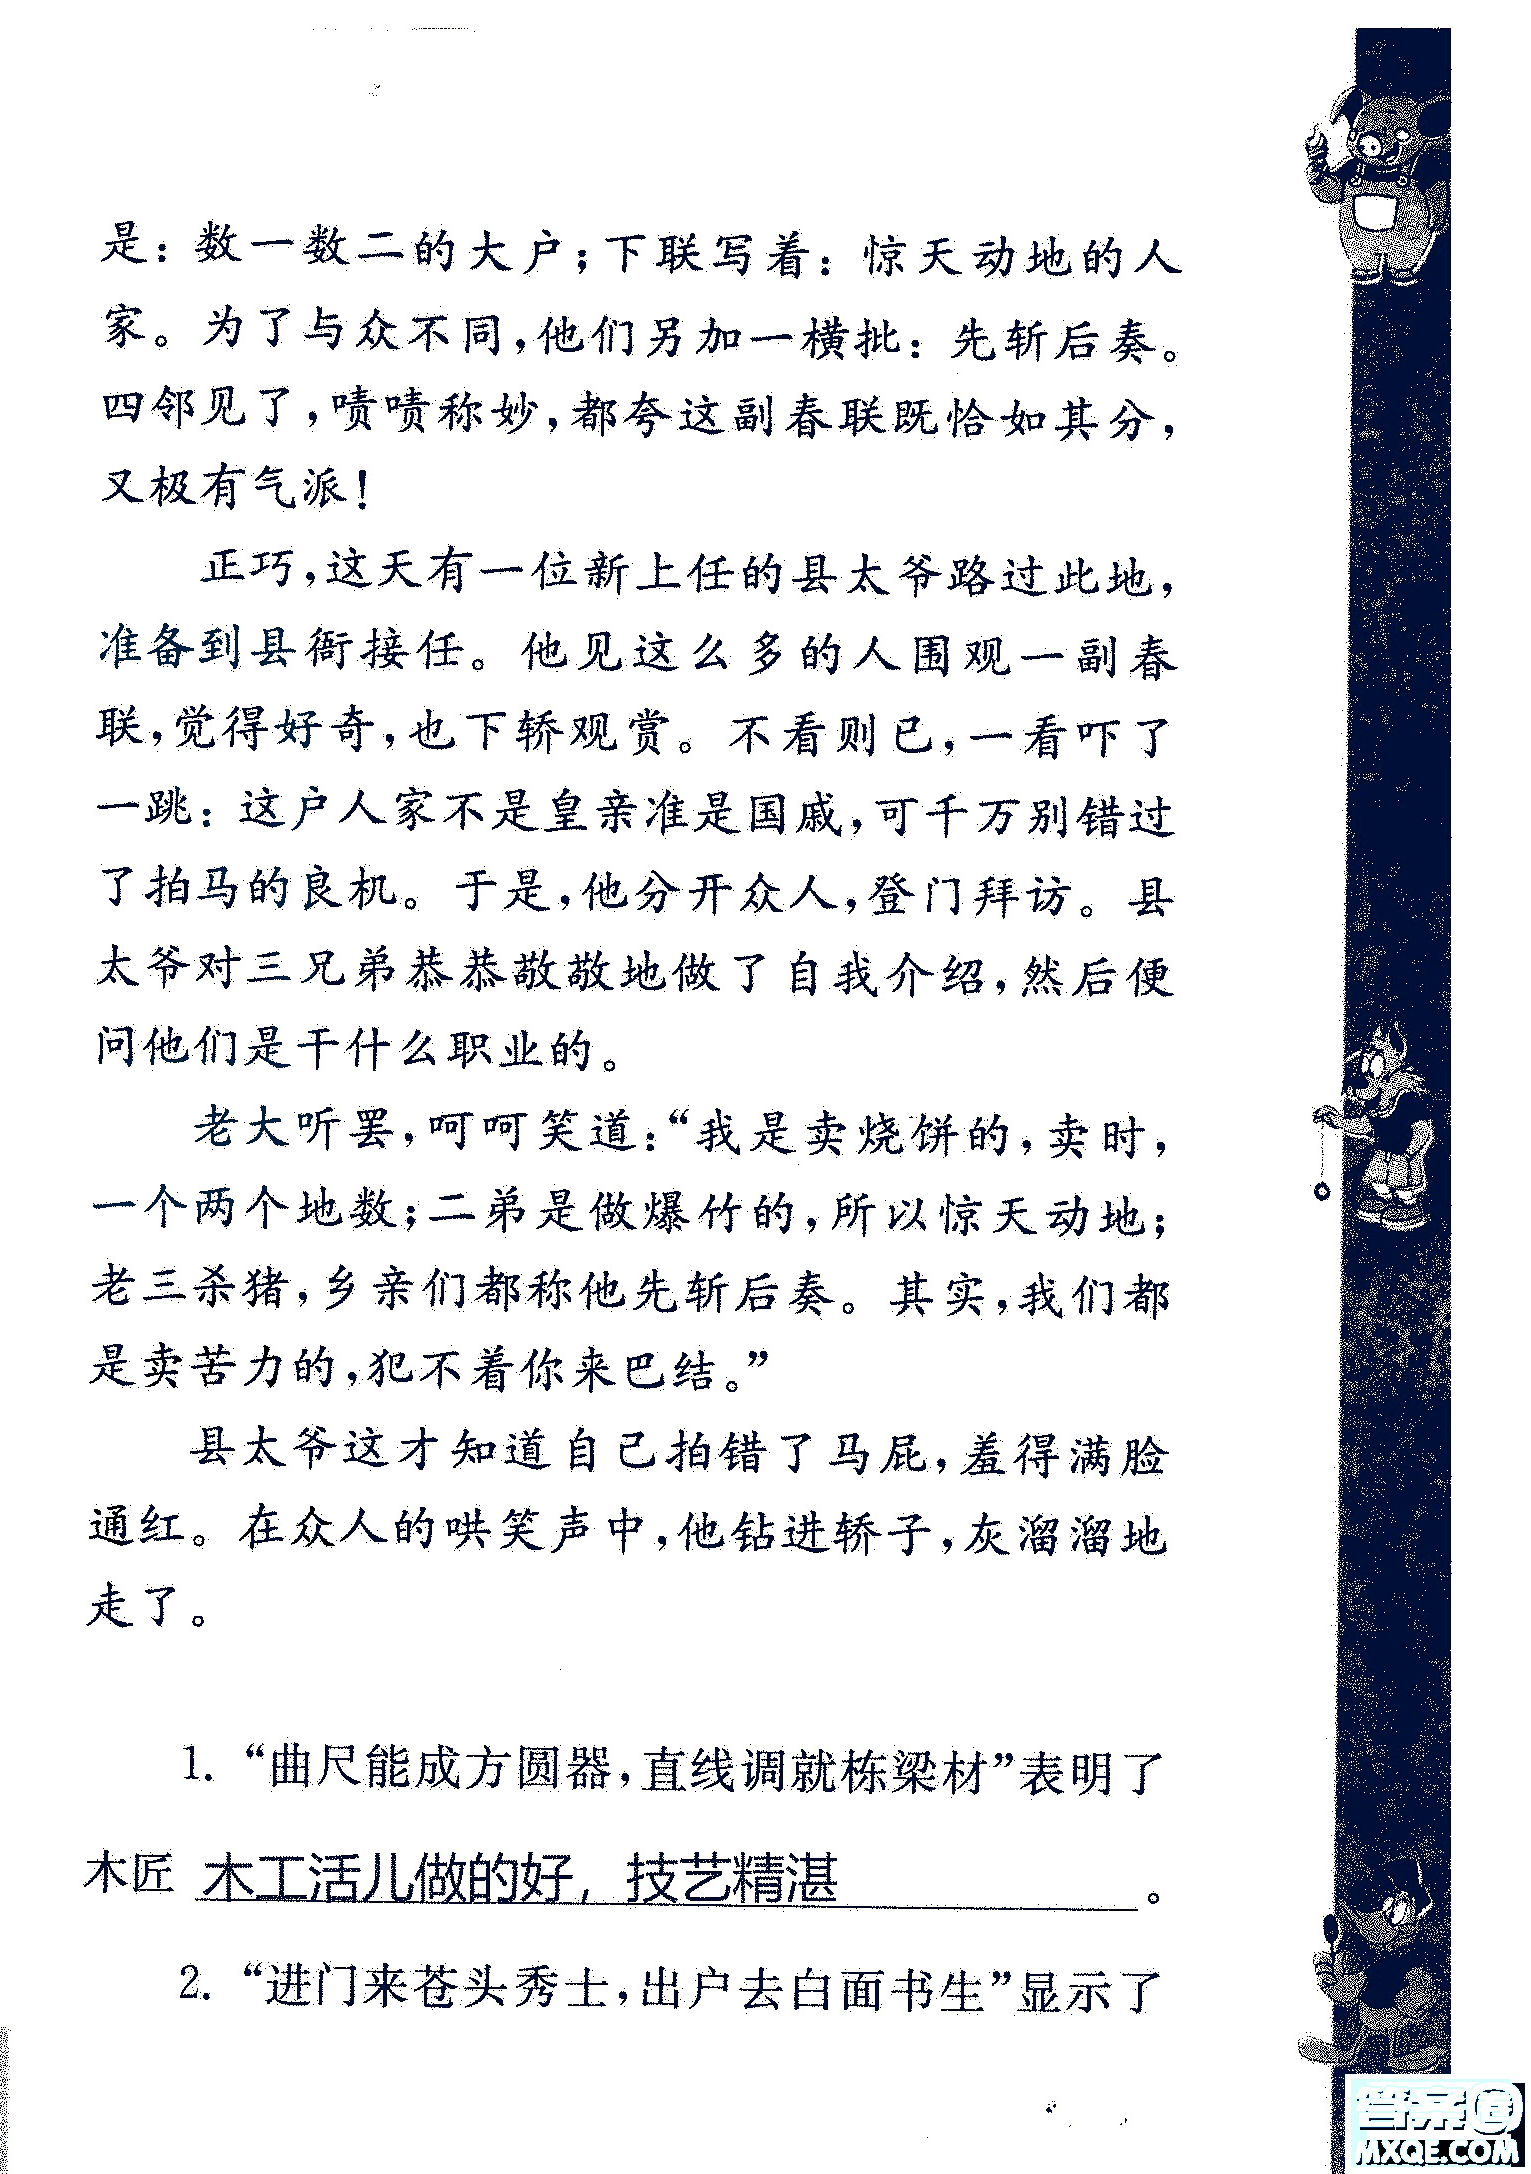 是：数一数二的大户；下联写着：惊天动地的人
家。为了与众不同，他们另加一横批：先斩后奏。
四邻见了，啧啧称妙，都夸这副春联既恰如其分，
又极有气派！
正巧，这天有一位新上任的县太爷路过此地，
准备到县衙接任。他见这么多的人围观一副春
联，觉得好奇，也下轿观赏。不看则已，一看吓了
一跳：这户人家不是皇亲准是国戚，可千万别错过
了拍马的良机。于是，他分开众人，登门拜访。县
太爷对三兄弟恭恭敬敬地做了自我介绍，然后便
问他们是干什么职业的。
老大听罢，呵呵笑道：“我是卖烧饼的，卖时，
一个两个地数；二弟是做爆竹的，所以惊天动地；
老三杀猪，乡亲们都称他先斩后奏。其实，我们都
是卖苦力的，犯不着你来巴结。”
县太爷这才知道自己拍错了马屁，羞得满脸
通红。在众人的哄笑声中，他钻进轿子，灰溜溜地
走了。
1. “曲尺能成方圆器，直线调就栋梁材”表明了
木匠 木工活儿做的好，技艺精湛 。
2. “进门来苍头秀士，出户去白面书生”显示了
答案圈
MXQE.COM